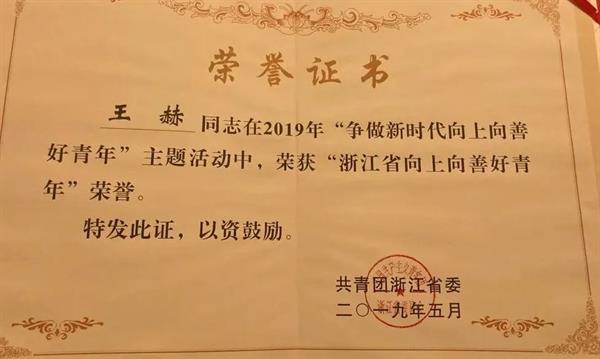 荣誉证书
王赫 同志在2019年“争做新时代向上向善
好青年”主题活动中，荣获“浙江省向上向善好青
年”荣誉。
特发此证，以资鼓励。
共青团浙江省委
二〇一九年五月